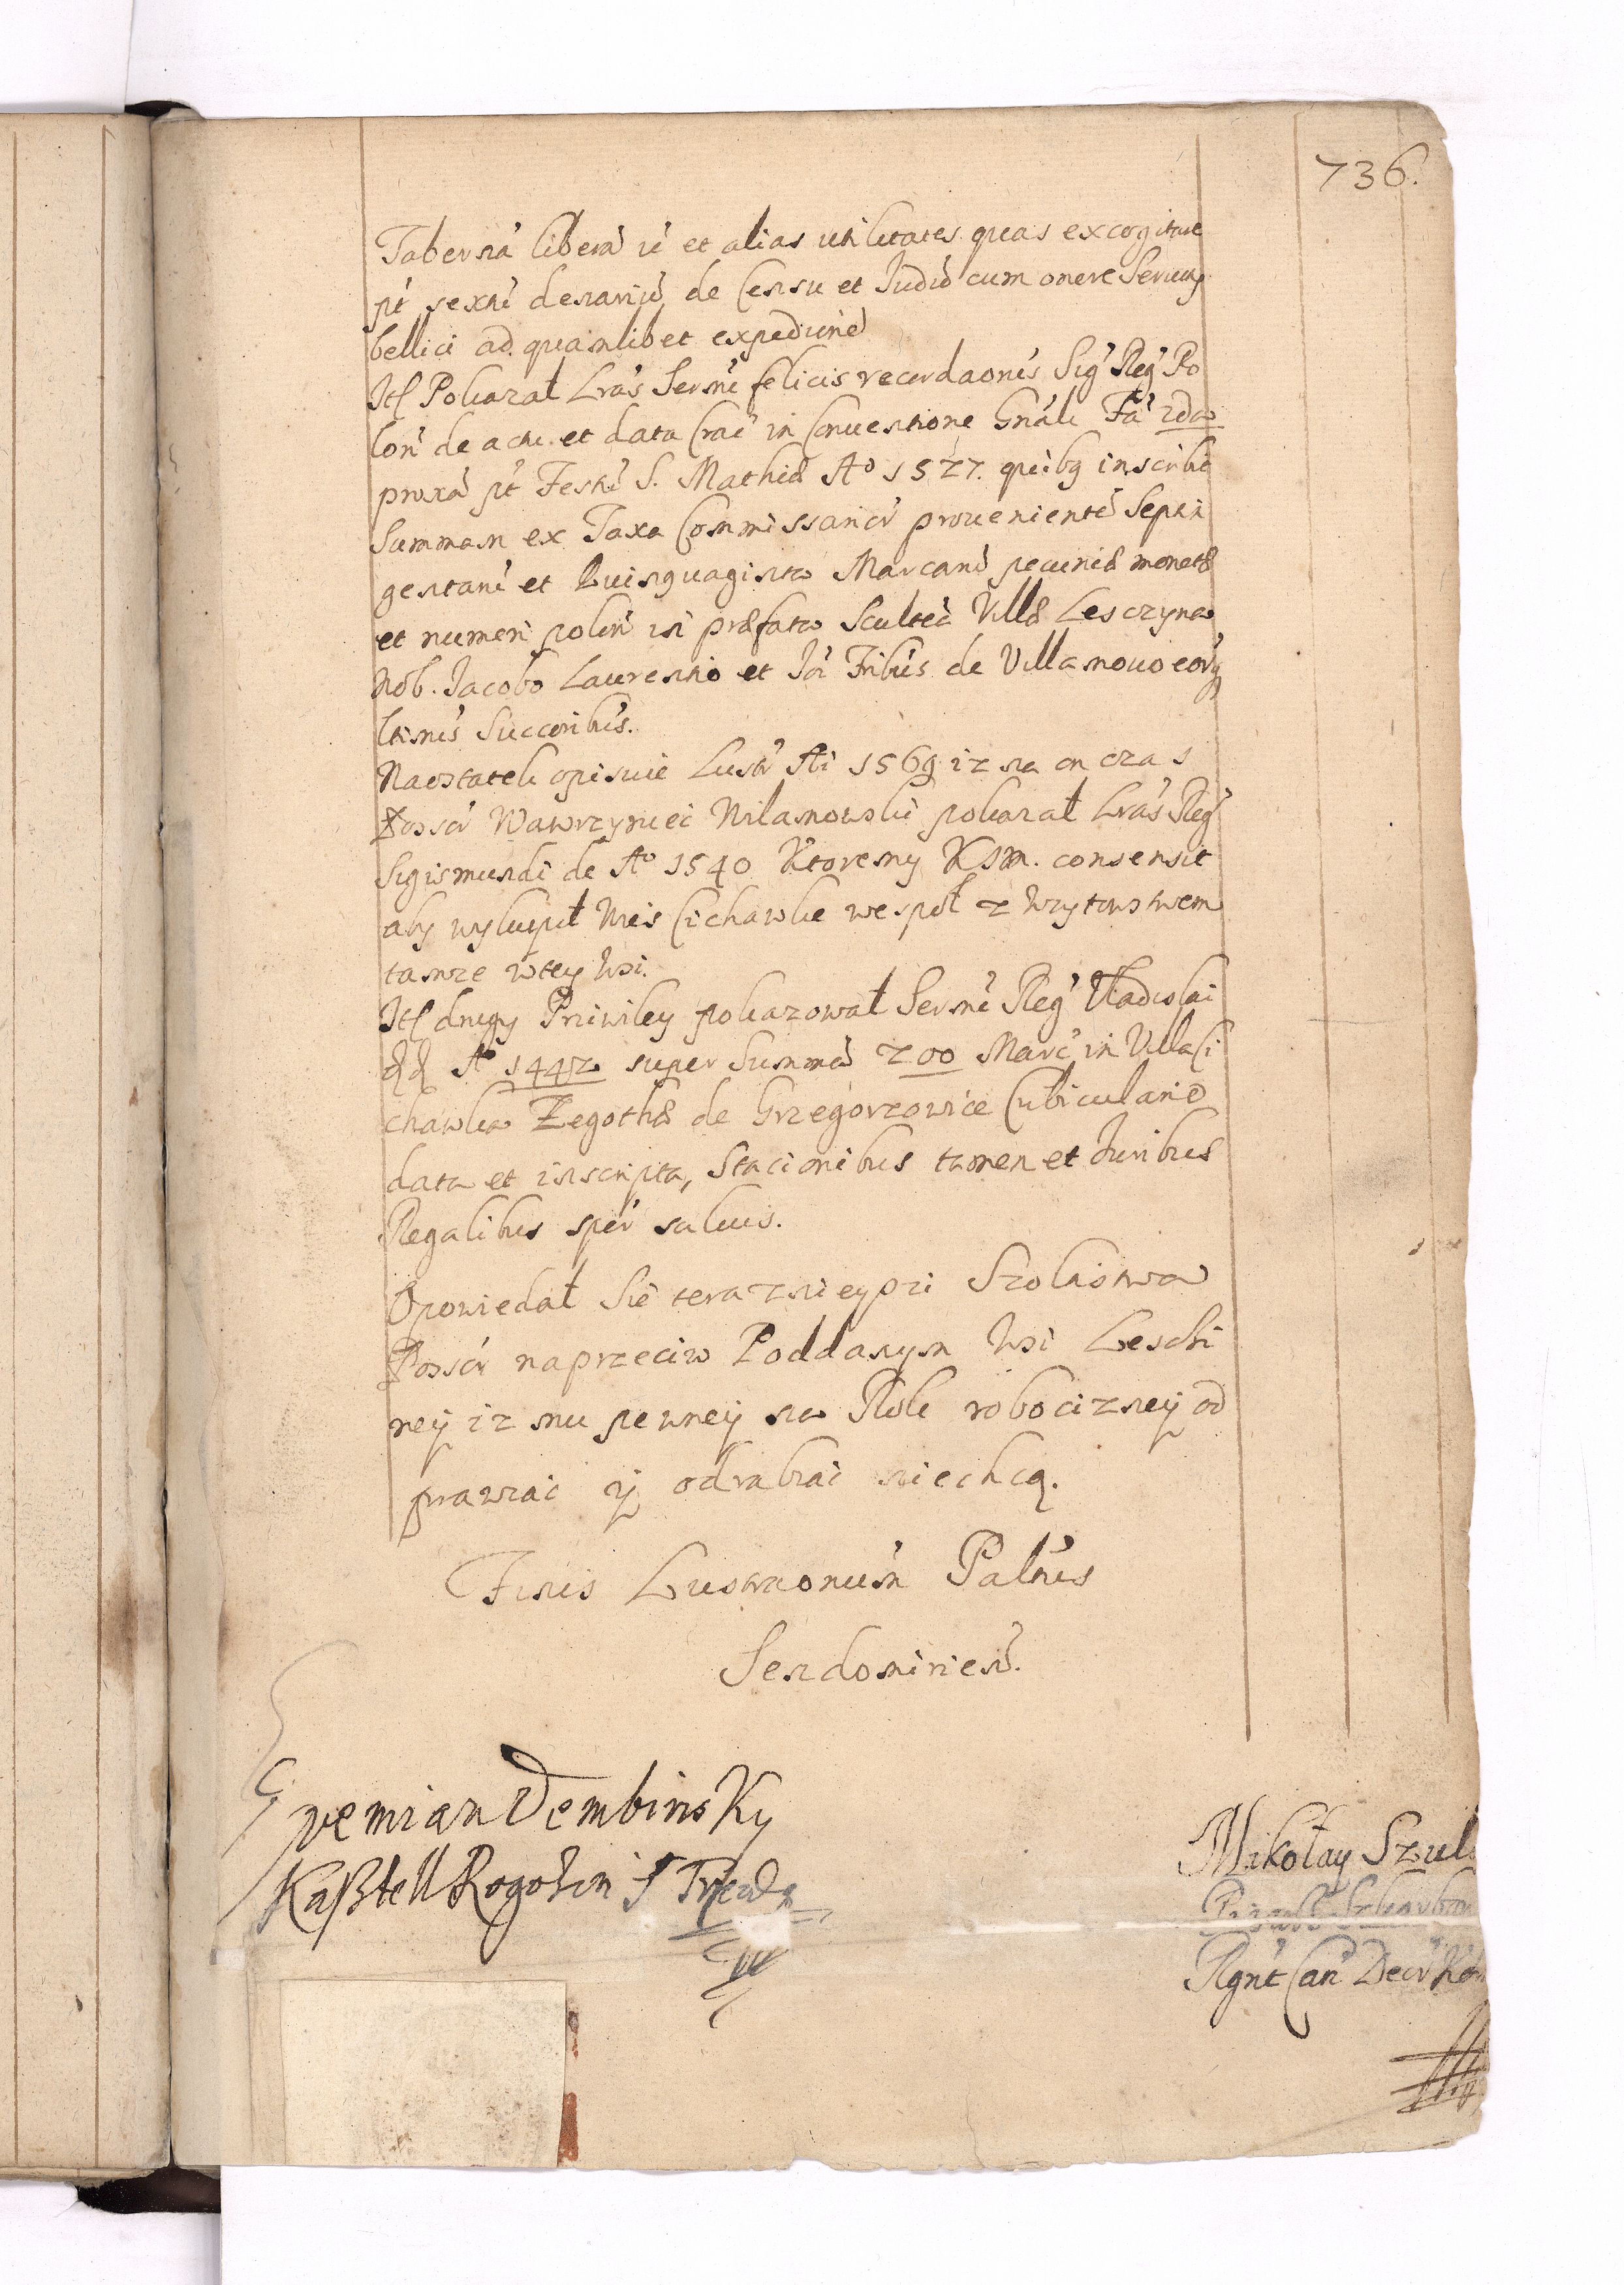 736.
Taberná liberá ić et alias utilitates quas excogitare
pt sextú denariú de Censu et Judió cum onere Seruitÿ
bellici ad quamlibet expedionē
Itē Pokazał Lrás Sermi felicis recordaonis Sig Reg Po
lon de actu et data Crac in Conuentione Gnáli Fá 2da
proxá pt Festú S. Mathiæ Aº 1527. quibꝫ inscribit
Summam ex Taxa Commissarior prouenientē Septin
gentarú et Quinquagintα Marcarú pecuniæ monetæ
et numeri polon in præfata Scultēa Villæ Lesczyna
Nob. Jacobo Laurentio et Jōi Frībus de Villanouo eorꝫ
ltimis Succoribus.
Naostatek opisuie Lustr Ai 1569 iz na on czas
Possor Wawrzyniec Milanowski pokazał Lrás Reg
Sigismundi de Aº 1540 Ktoremy KJM. consensit
aby wykupił Wies Cichawkę wespół z Woytowstwem
tamze wtey Wsi.
Itē drugy Priwiley pokazował Sermi Reg Vladislai
dd Aº 1442 super Summá 200 Marc in Villa Ci
chawka Zegothæ de Grzegorzowice Cubiculario
data et inscripta, Stacionibus tamen et Juribus
Regalibus sper saluis.
Opowiedał Się teraznieyszi Szoltistwa
Possor naprzeciw Poddanym Wsi Leschi
ney iz mu pewney na Roli robocizney od
prawiać ÿ odrabiać niechcą.
Finis Lustraonum Palnus
Sendomirien.
Dembinsky
Kasztell Rogozin S
Mikołay Szul
Pisarz Skarbow
Rgnt Can